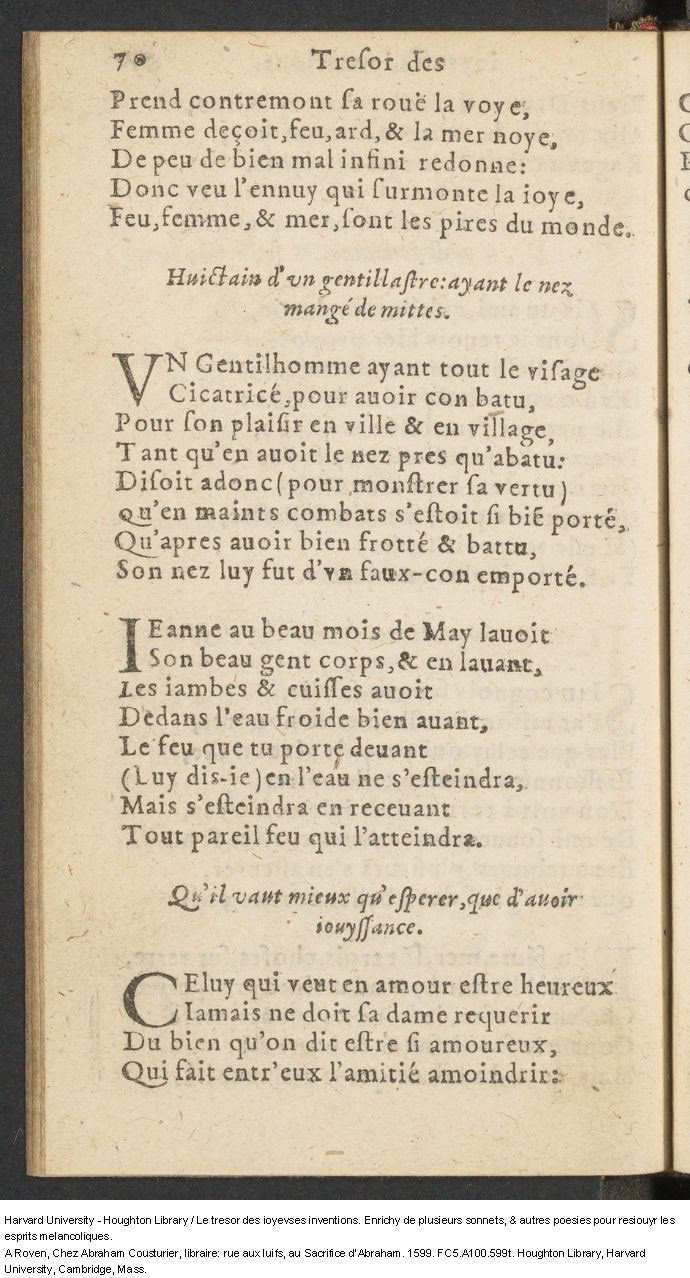 70 Tresor des
Prend contremont sa rouë la voye,
Femme deçoit, feu, ard, & la mer noye,
De peu de bien mal infini redonne:
Donc veu l'ennuy qui surmonte la ioye,
Feu, femme, & mer, sont les pires du monde.
Huictain d'vn gentillastre: ayant le nez
mangé de mittes.
VN Gentilhomme ayant tout le visage
Cicatricé, pour auoir con batu,
Pour son plaisir en ville & en village,
Tant qu'en auoit le nez pres qu'abatu:
Disoit adonc (pour monstrer sa vertu)
Qu'en maints combats s'estoit si biẽ porté,
Qu'apres auoir bien frotté & battu,
Son nez luy fut d'vn faux-con emporté.
IEanne au beau mois de May lauoit
Son beau gent corps, & en lauant,
Les iambes & cuisses auoit
Dedans l'eau froide bien auant,
Le feu que tu porte deuant
(Luy dis-ie) en l'eau ne s'esteindra,
Mais s'esteindra en receuant
Tout pareil feu qui l'atteindra.
Qu'il vaut mieux qu'esperer, que d'auoir
iouyssance.
CEluy qui veut en amour estre heureux
Iamais ne doit sa dame requerir
Du bien qu'on dit estre si amoureux,
Qui fait entr'eux l'amitié amoindrir:
Harvard University - Houghton Library / Le tresor des ioyevses inventions. Enrichy de plusieurs sonnets, & autres poesies pour resiouyr les
esprits melancoliques.
A Roven, Chez Abraham Cousturier, libraire: rue aux Iuifs, au Sacrifice d'Abraham. 1599. FC5.A100.599t. Houghton Library, Harvard
University, Cambridge, Mass.